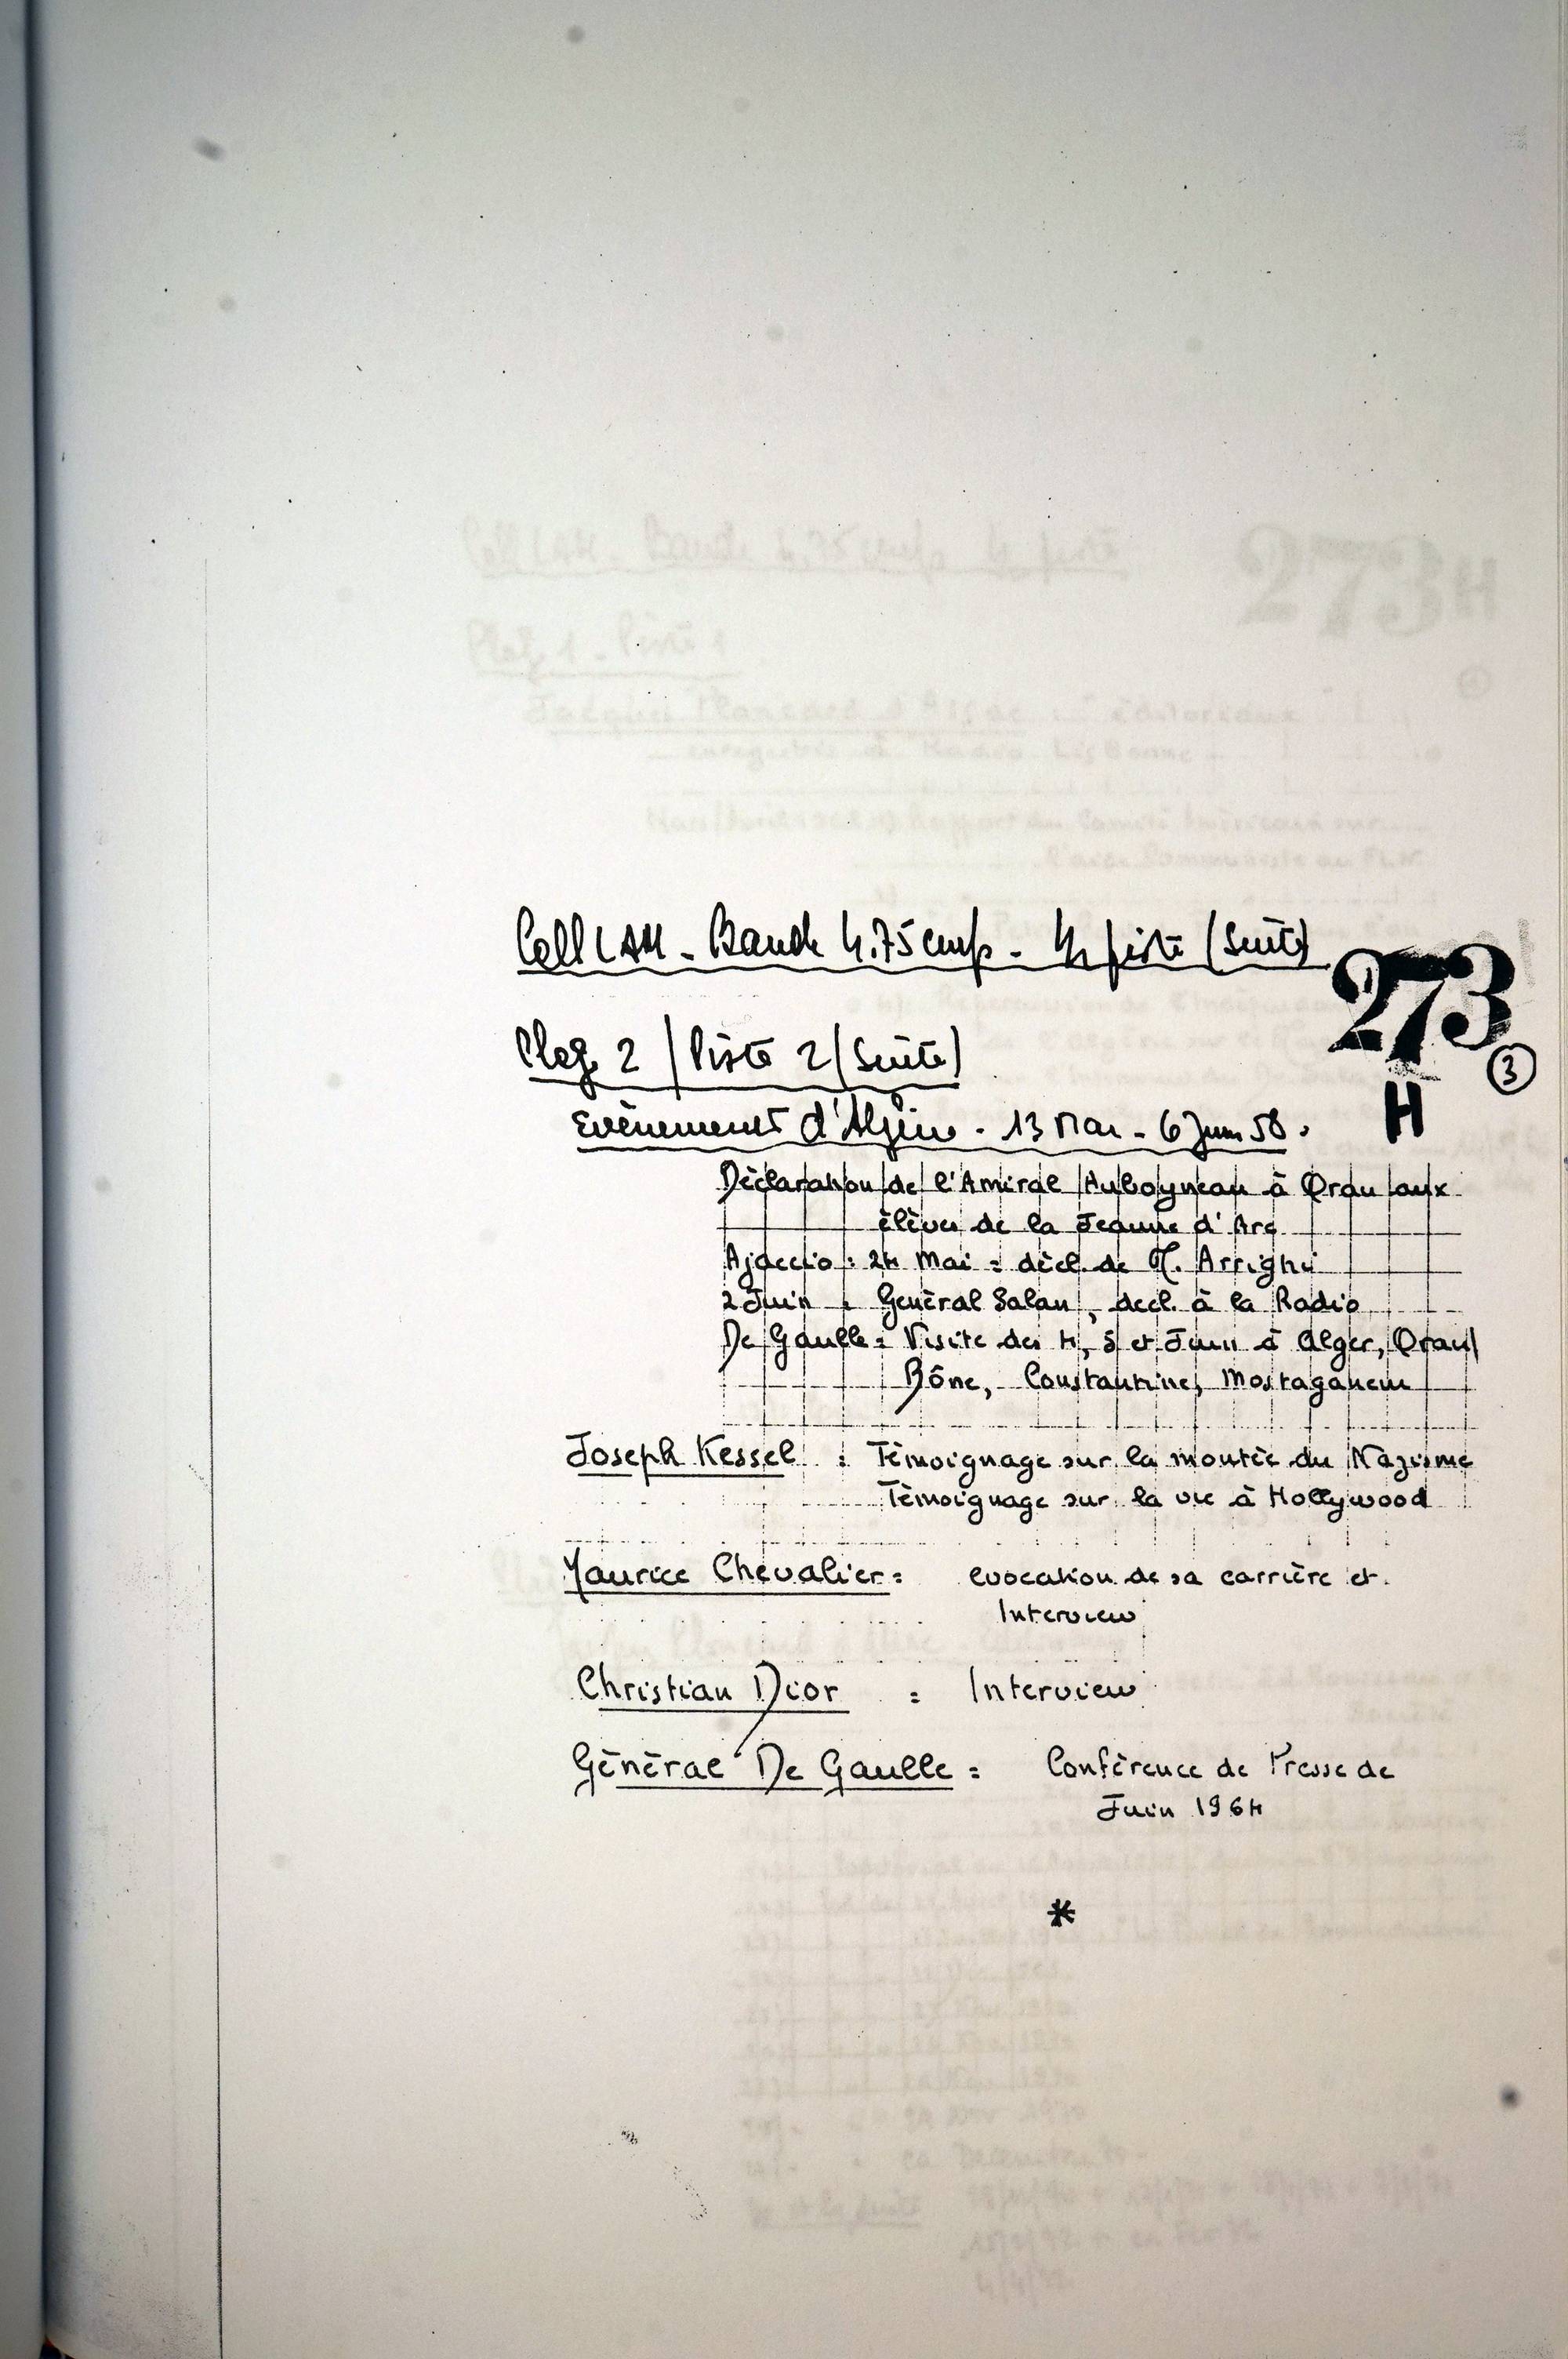 Coll LAM - Bande 4.75 cm/s - 1/2 piste (Suite)
273
Plag 2 / Piste 2 (Suite)
3
H
Evènements d'Algérie - 13 Mai - 6 Juin 58.
Dèclaration de l'Amiral Auboyneau à Oran aux
élèves de la Jeanne d'Arc
Ajaccio : 24 Mai = dècl. de M. Arrighi
2 Juin : Genèral Salan, decl. à la Radio
De Gaulle = Visite des 4, 5 et Juin à Alger, Oran
Bône, Constantine, Mostaganem
Joseph Kessel : Tèmoignage sur la montèe du Nazisme
Tèmoignage sur la vie à Hollywood
Maurice Chevalier = evocation de sa carrière et
Interview
Christian Dior = Interview
Gènèral De Gaulle = Confèrence de Presse de
Juin 1964
*